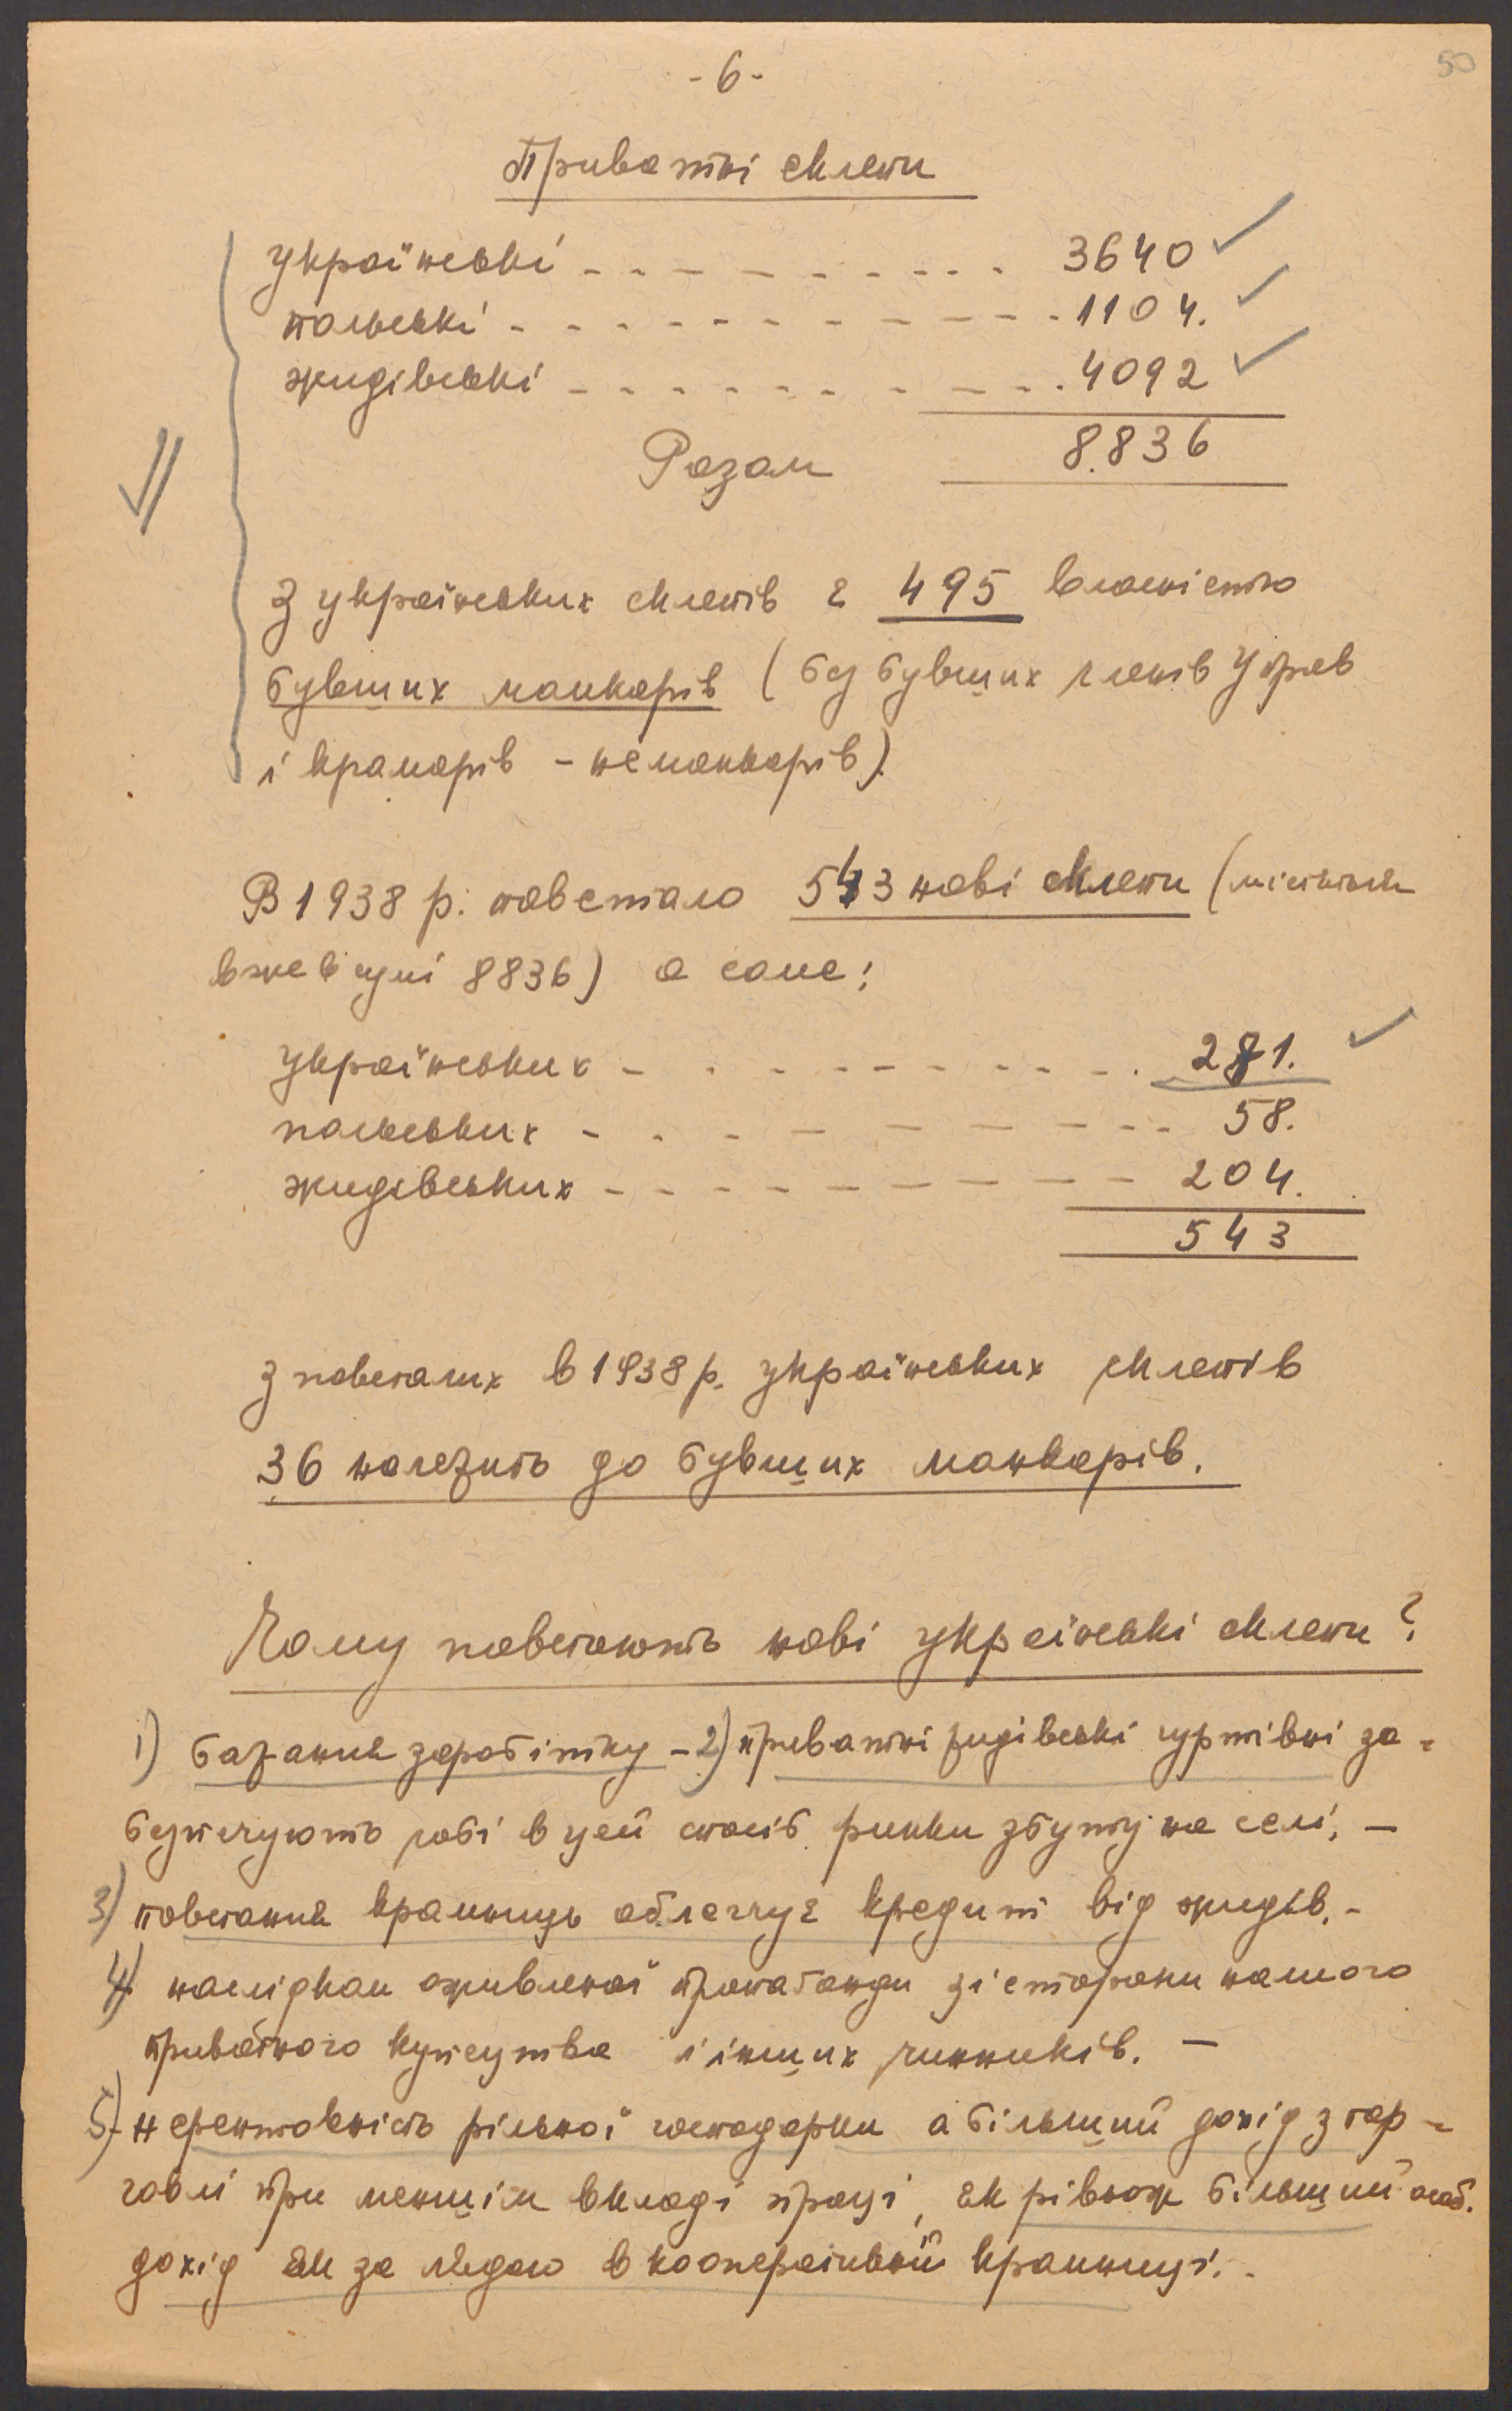 - 6 -
50
Приватні склепи
українські - - - - - - - - - - 3640
польські - - - - - - - - - - - 1104.
жидівські - - - - - - - - - - 4092
Разом 8.836
З українських склепів є 495 власністю
бувших манкарів (без бувших членів Управ
і крамарів - неманкарів).
В 1938 р. повстало 543 нові склепи (містяться
вже в сумі 8836) а саме:
українських - - - - - - - - - - 281.
польських - - - - - - - - - - 58.
жидівських - - - - - - - - - - 204.
543
З повсталих в 1938 р. українських склепів
36 належить до бувших манкарів.
Чому повстають нові українські склепи?
1) бажання заробітку - 2) приватні жидівські гуртівні за-
безпечують собі в цей спосіб ринки збуту на селі. -
3) повстання крамниць облегчує кредит від жидів. -
4) наслідком оживленої пропаганди зі сторони нашого
приватного купецтва і інших чинників. -
5) нерентовність рільної господарки а більший дохід з тор-
говлі при меншім вкладі праці, як рівнож більший особ.
дохід як за лядою в кооперативній крамниці. -